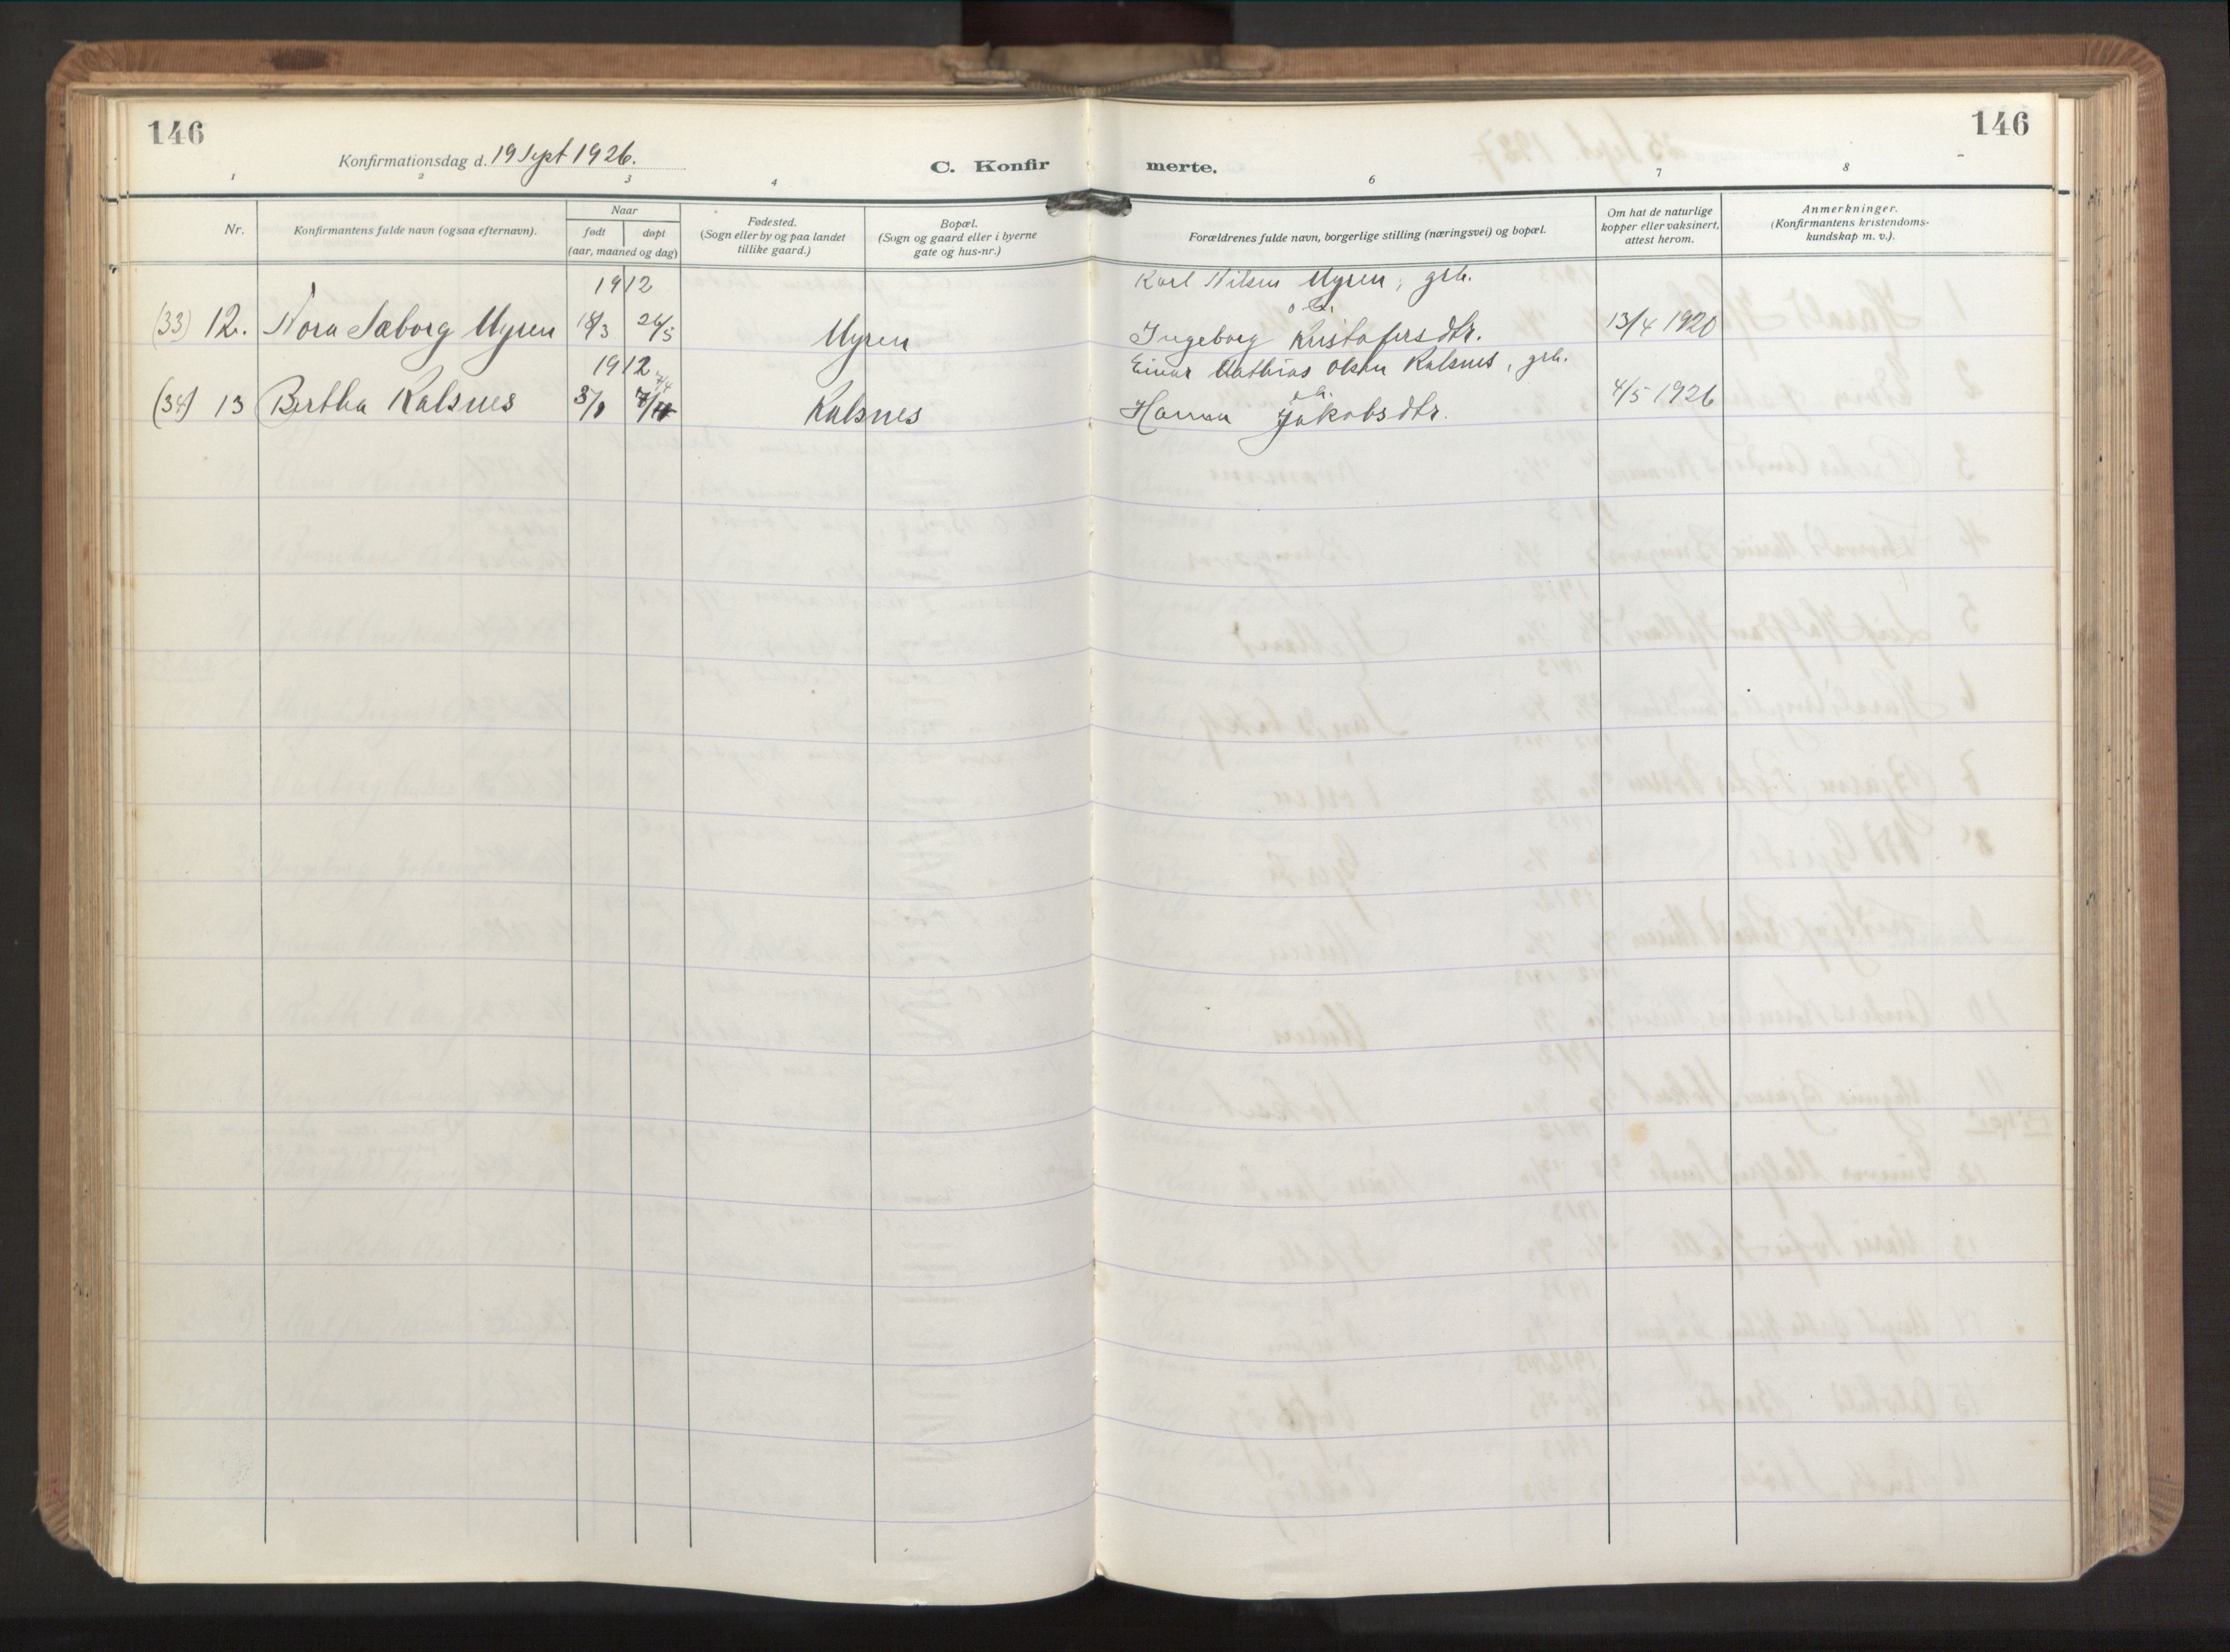 146
146
Konfirmationsdag d. 19 Sept 1926.
C. Konfirmerte.
1 2 3 4 6 7 8
Nr.
Konfirmantens fulde navn (ogsaa efternavn).
Naar
født døpt
(aar, maaned og dag)
Fødested.
(Sogn eller by og paa landet
tillike gaard.)
Bopæl.
(Sogn og gaard eller i byerne
gate og hus-nr.)
Forældrenes fulde navn, borgerlige stilling (næringsvei) og bopæl.
Om hat de naturlige
kopper eller vaksinert,
attest herom.
Anmerkninger.
(Konfirmantens kristendoms-
kundskap m. v.).
1912
Karl Nilsen Myren, grb.
(33) 12. Nora Sæborg Myren 18/3 26/5 Myren Ingeborg Kristofersdtr. 13/4 1920
1912
Einar Mathias Olsen Kalsnes, grb.
7/4
(34) 13 Bertha Kalsnes 3/1 Kalsnes Hanna Jakobsdtr. 4/5 1926